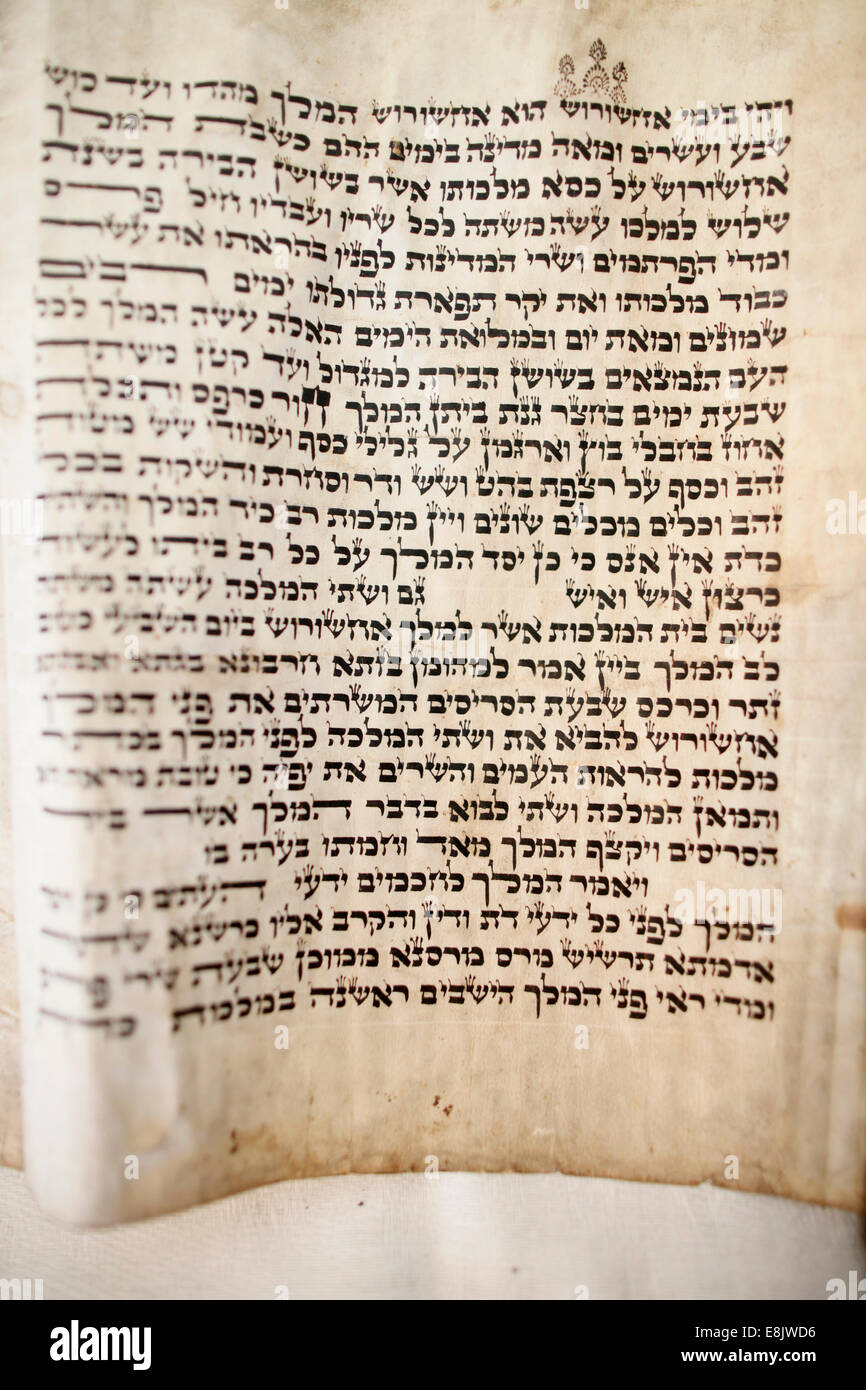 ויהי בימי אחשורוש הוא אחשורוש המלך מהדו ועד כוש
שבע ועשרים ומאה מדינה בימים ההם כשבת המלך
אחשורוש על כסא מלכותו אשר בשושן הבירה בשנת
שלוש למלכו עשה משתה לכל שריו ועבדיו חיל פרס
ומדי הפרתמים ושרי המדינות לפניו בהראתו את עשר
כבוד מלכותו ואת יקר תפארת גדולתו ימים רבים
שמונים ומאת יום ובמלואת הימים האלה עשה המלך לכל
העם הנמצאים בשושן הבירה למגדול ועד קטן משתה
שבעת ימים בחצר גנת ביתן המלך חור כרפס ותכלת
אחוז בחבלי בוץ וארגמן על גלילי כסף ועמודי שש מטות
זהב וכסף על רצפת בהט ושש ודר וסחרת והשקות בכלי
זהב וכלים מכלים שונים ויין מלכות רב כיד המלך והשתיה
כדת אין אנס כי כן יסד המלך על כל רב ביתו לעשות
כרצון איש ואיש גם ושתי המלכה עשתה משתה
נשים בית המלכות אשר למלך אחשורוש ביום השביעי כטוב
לב המלך ביין אמר למהומן בזתא חרבונא בגתא ואבגתא
זתר וכרכס שבעת הסריסים המשרתים את פני המלך
אחשורוש להביא את ושתי המלכה לפני המלך בכתר
מלכות להראות העמים והשרים את יפיה כי טובת מראה
ותמאן המלכה ושתי לבוא בדבר המלך אשר ביד
הסריסים ויקצף המלך מאד וחמתו בערה בו
ויאמר המלך לחכמים ידעי העתים כי כן
המלך לפני כל ידעי דת ודין והקרב אליו כרשנא שתר
אדמתא תרשיש מרס מרסנא ממוכן שבעת שרי פרס
ומדי ראי פני המלך הישבים ראשנה במלכות כדת
alamy
Image ID: E8JWD6
www.alamy.com